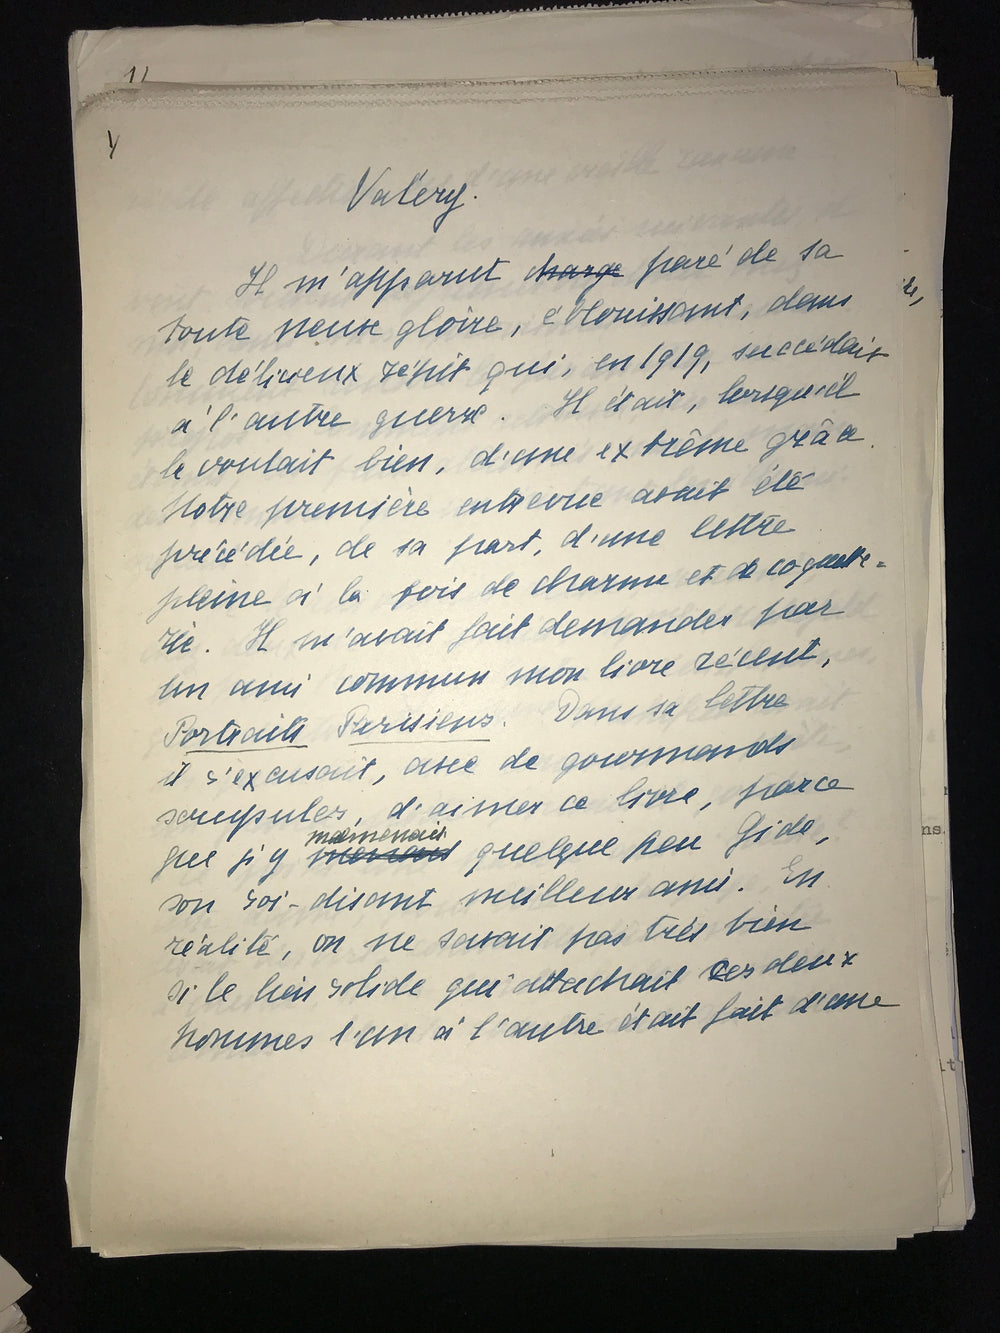 Valéry.
Il m'apparut charge paré de sa
toute neuve gloire, éblouissant, dans
le délicieux répit qui, en 1919, succédait
à l'autre guerre. Il était, lorsqu'il
le voulait bien, d'une extrême grâce.
Notre première entrevue avait été
précédée, de sa part, d'une lettre
pleine à la fois de charme et de coquette-
rie. Il m'avait fait demander par
un ami commun mon livre récent,
Portraits Parisiens. Dans sa lettre
il s'excusait, avec de gourmands
scrupules, d'aimer ce livre, parce
malmenais
que j'y quelque peu Gide,
son soi-disant meilleur ami. En
réalité, on ne savait pas très bien
si le lien solide qui attachait ces deux
hommes l'un à l'autre était fait d'une
ns